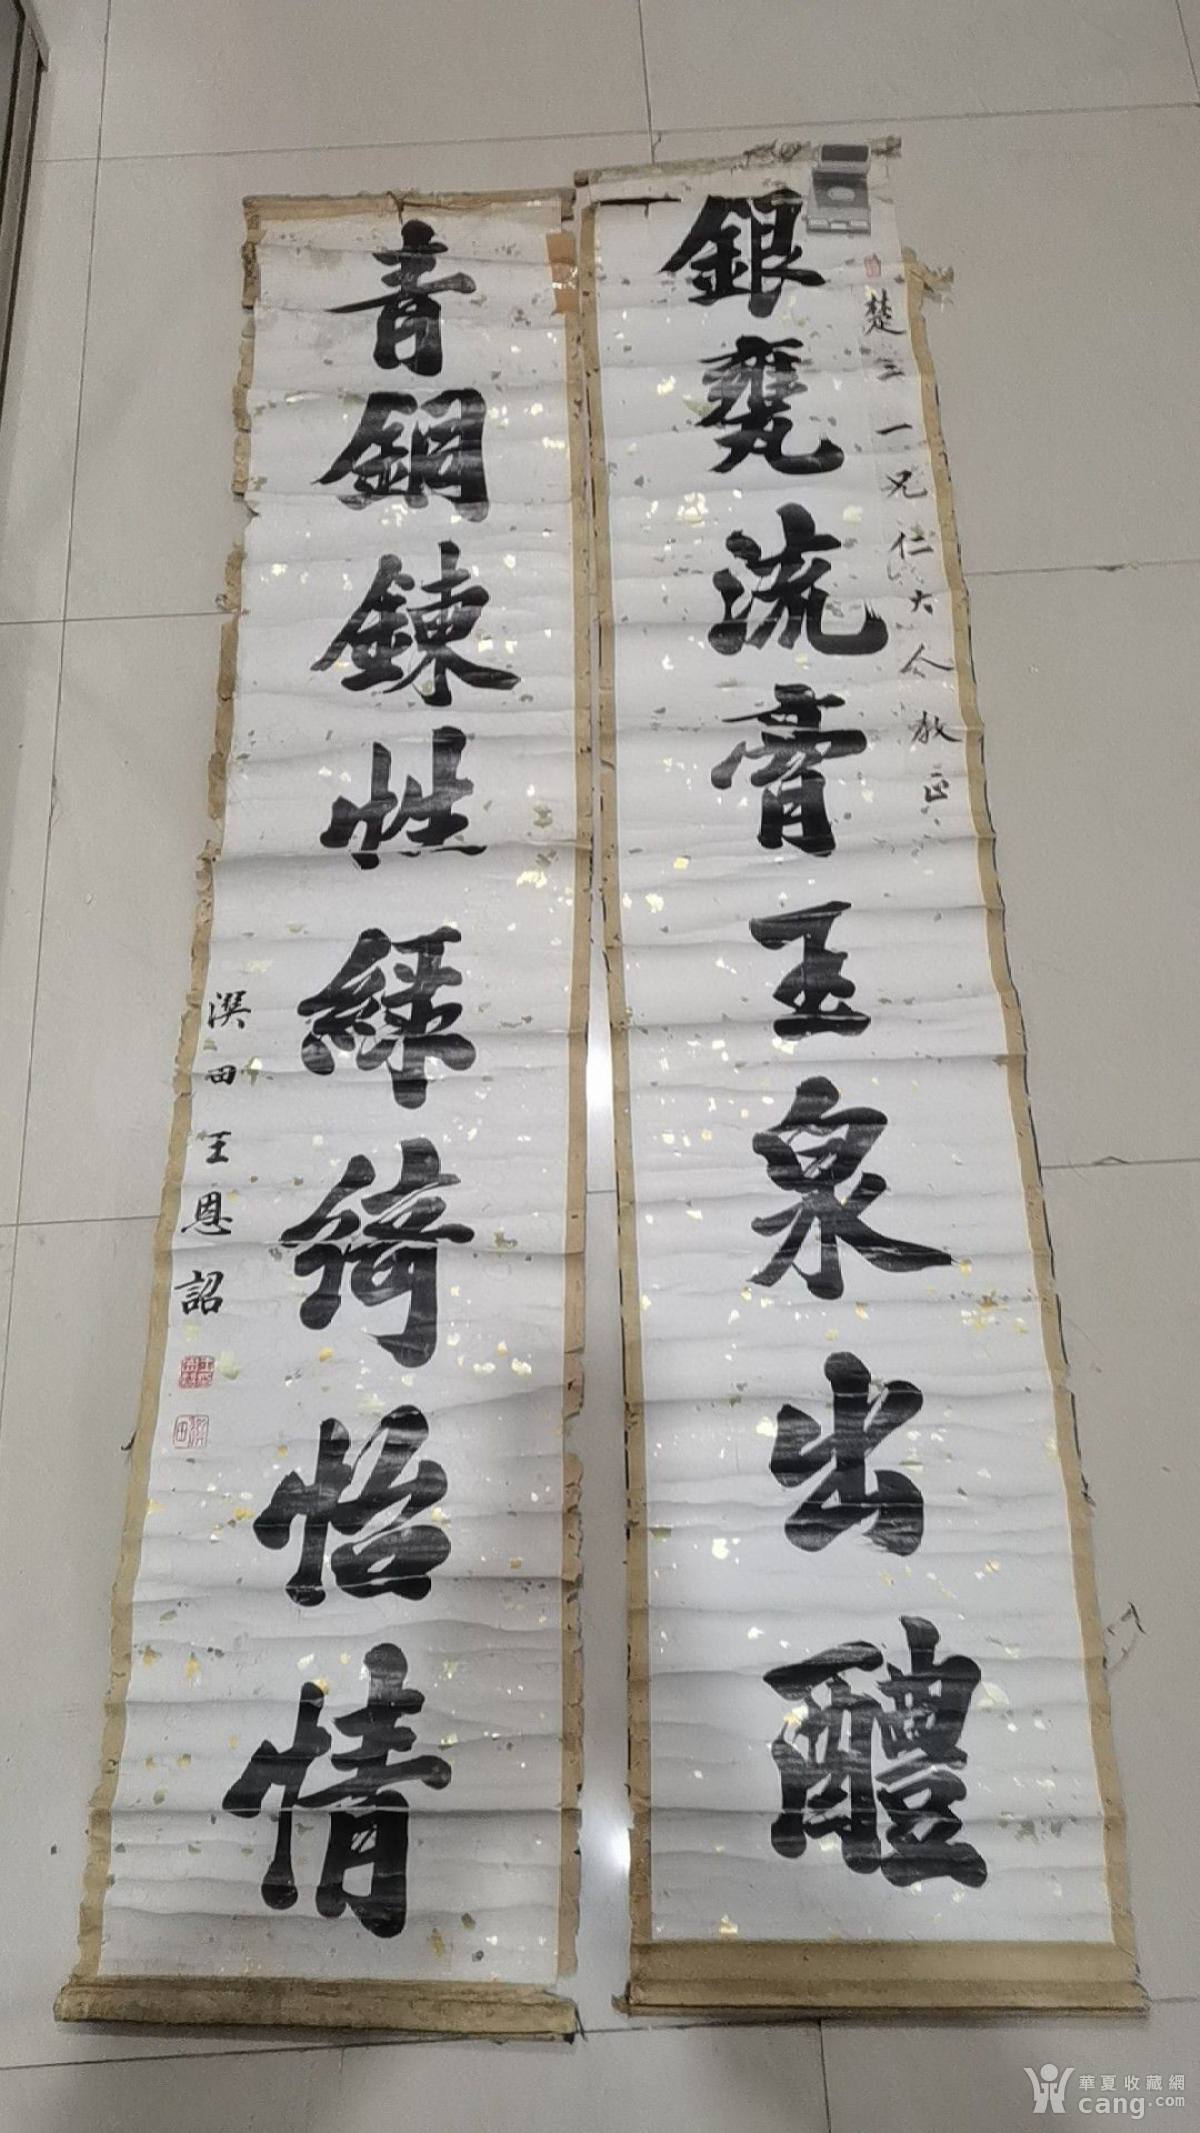 楚三一兄仁大人教正
銀甕流膏玉泉出醴
青銅鍊性緑綺怡情
澴田王恩詔
華夏收藏網
cang.com